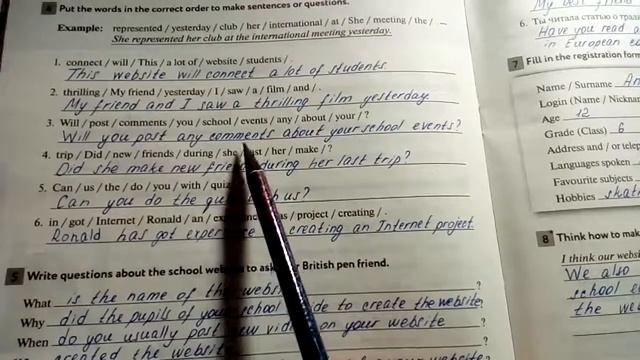 4 Put the words in the correct order to make sentences or questions.
Example: represented / yesterday / club / her / international / at / She / meeting / the / .
She represented her club at the international meeting yesterday.
1. connect / will / This / a lot of / website / students / .
This website will connect a lot of students.
2. thrilling / My friend / yesterday / I / saw / a / film / and / .
My friend and I saw a thrilling film yesterday.
3. Will / post / comments / you / school / events / any / about / your / ?
Will you post any comments about your school events?
4. trip / Did / new / friends / during / she / / her / make / ?
Did she make new during her last trip?
5. Can / us / the / do / you / with /
Can you do the us?
6. in / got / Internet / Ronald / an / / as / project / creating / .
Ronald has got creating an Internet project.
5 Write questions about the school British pen friend.
What is the name of the ?
Why did the pupils of your school to create the website?
When do you usually post new on your website ?
created the
6. Ты читала статью о
Have you read a
in European
7 Fill in the registration form
Name / Surname An
Login (Name /
Age 12
Grade (Class) 6
Address and / or
Languages spoken
Favourite subjects
Hobbies
8 Think how to
I think our
We also
school
the